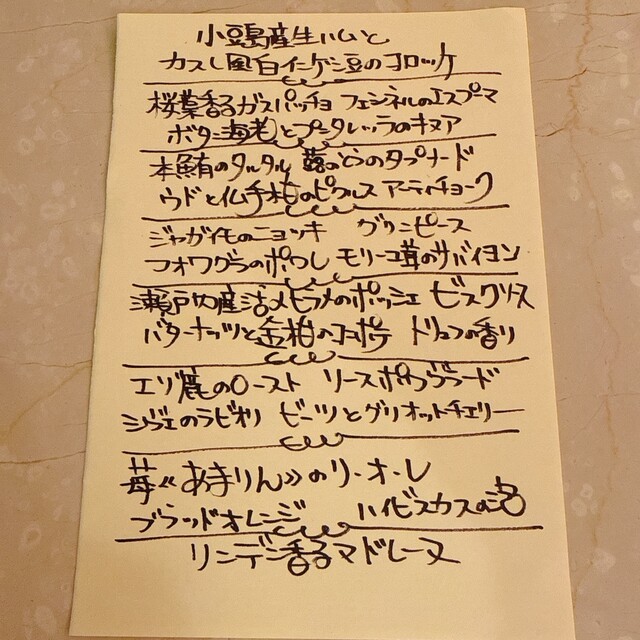 小豆島産生ハムと
カスレ風白インゲン豆のコロッケ
桜葉香るガスパッチョ フェンネルのエスプーマ
ボタン海老とプンタレッラのキヌア
本鮪のタルタル 蕗のとうのタプナード
ウドと仏手柑のピクルス アーティチョーク
ジャガイモのニョッキ グリーンピース
フォワグラのポワレ モリーユ茸のサバイヨン
瀬戸内産活〆ヒラメのポッシェ ビスクソース
バターナッツと金柑のコンポテ トリュフの香り
エゾ鹿のロースト ソースポワヴラード
シヴェのラビオリ ビーツとグリオットチェリー
苺《あまりん》のリ・オ・レ
ブラッドオレンジ ハイビスカスの泡
リンデン香るマドレーヌ